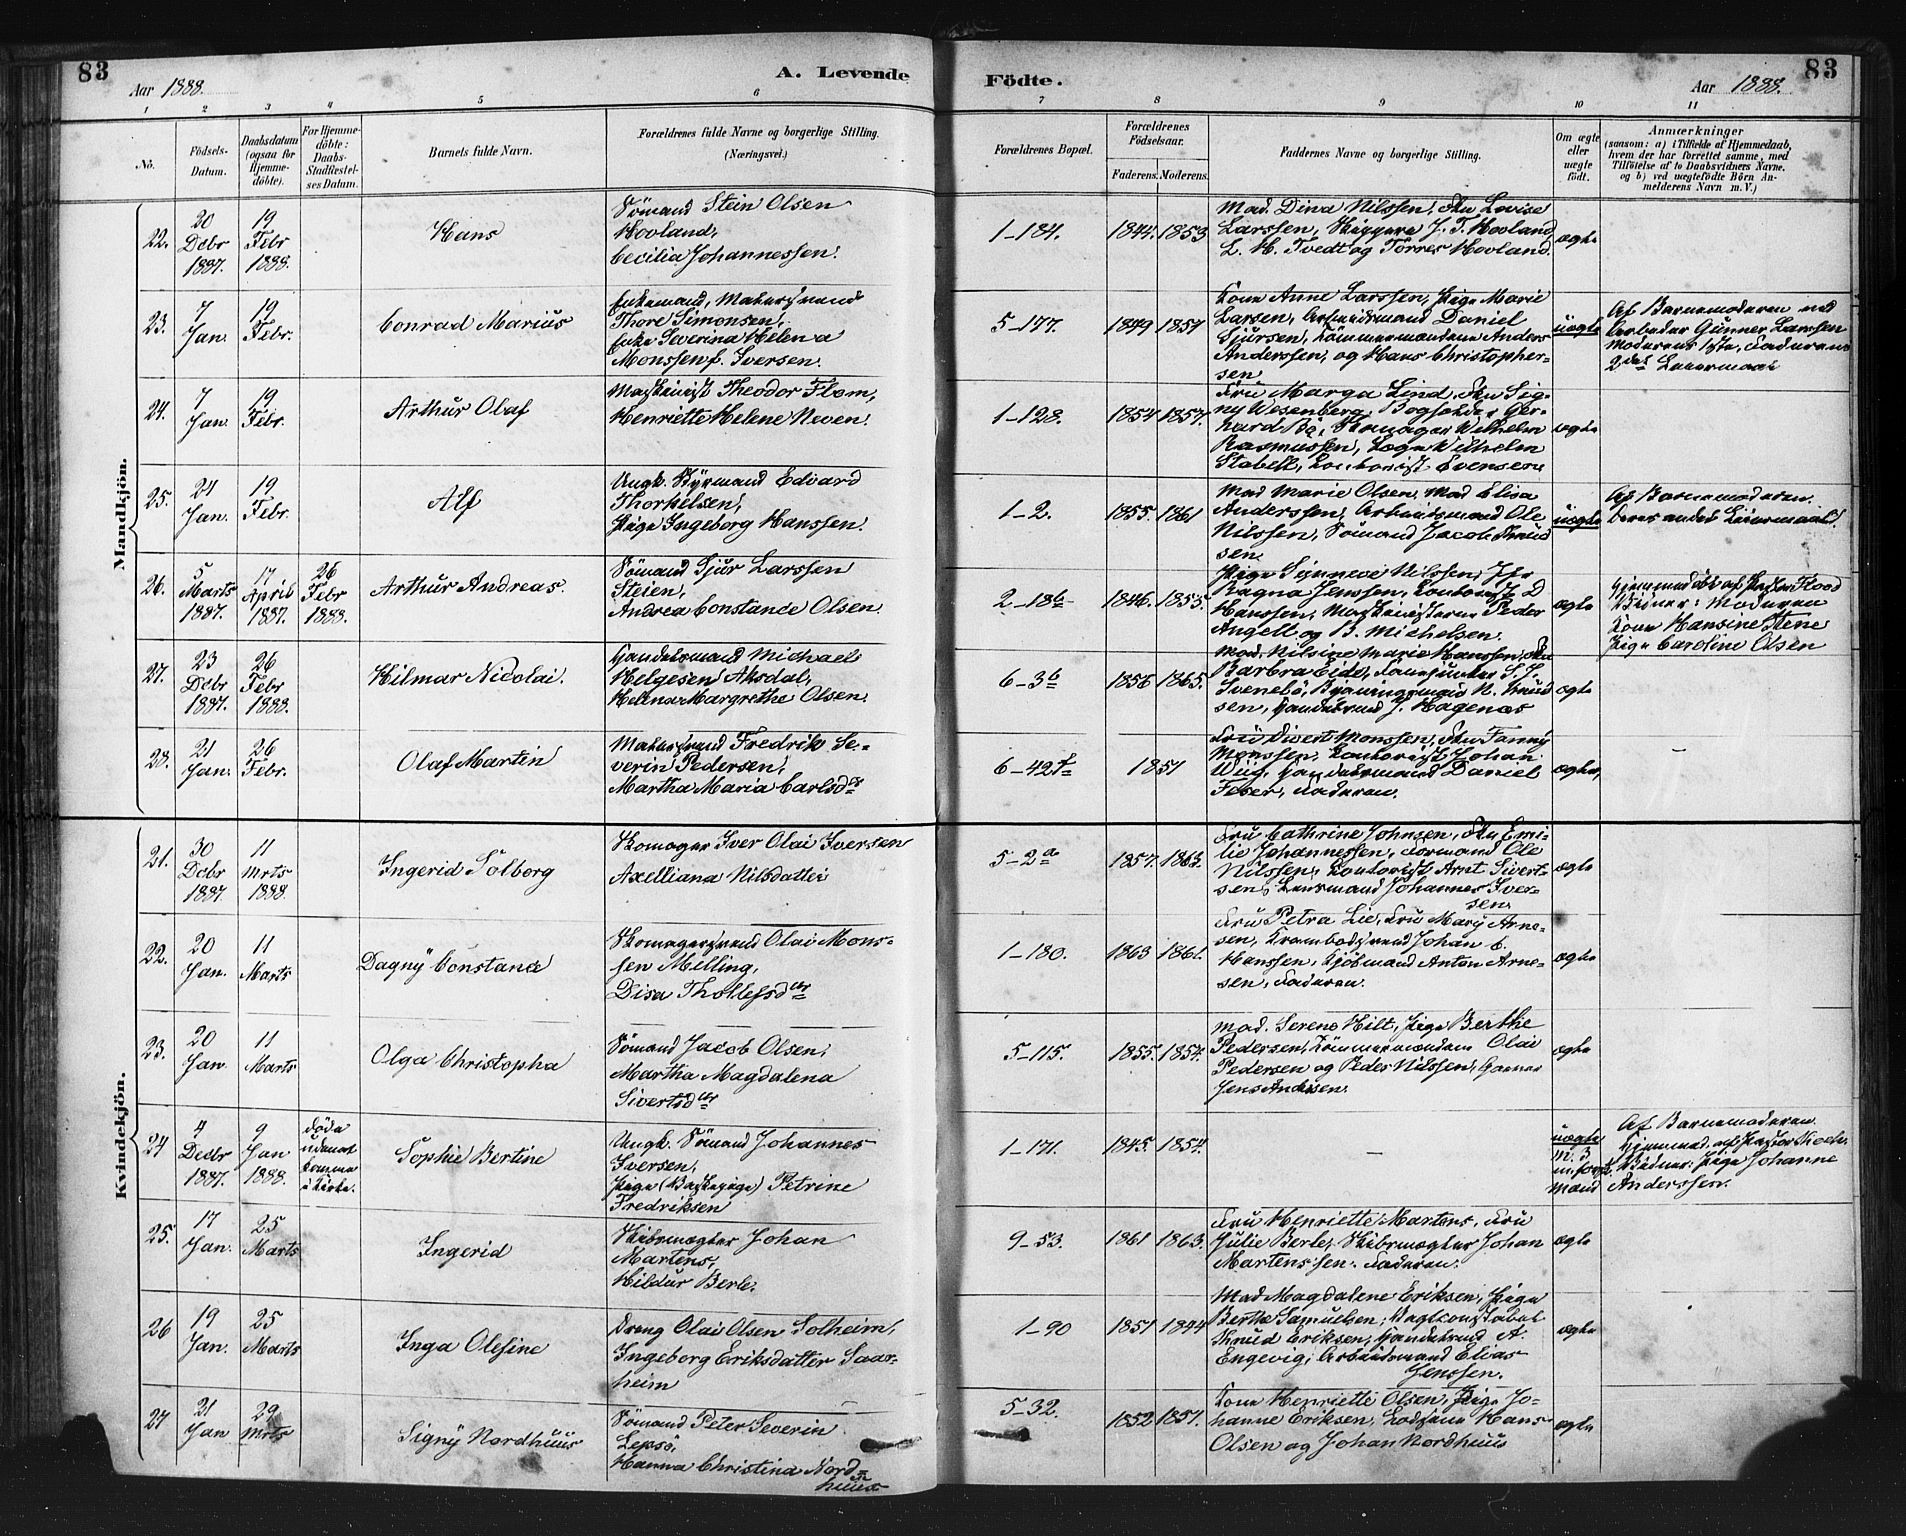 83
Aar 1888.
A. Levende
Födte.
Aar 1888.
83
1 2 3 4 5 6 7 8 9 10 11
No.
Födsels-
Datum.
Daabsdatum
(ogsaa for
Hjemme-
döbte).
For Hjemme-
döbte:
Daabs-
Stadfæstel-
ses Datum.
Barnets fulde Navn.
Forældrenes fulde Navne og borgerlige Stilling.
(Næringsvei.)
Forældrenes Bopæl.
Forældrenes
Födselsaar.
Faderens. Moderens.
Faddernes Navne og borgerlige Stilling.
Om ægte
eller
uægte
födt.
Anmærkninger
(saasom: a) i Tilfælde af Hjemmedaab,
hvem der har forrettet samme, med
Tilföielse af to Daabsvidners Navne.
og b) ved uægtefödte Börn An-
melderens Navn m. V.)
Mandkjön.
22.
20
Debr
1887.
19
Febr
1888.
Hans
Sömand Stein Olsen
Hovland,
Cecilia Johannessen.
1-184.
1844. 1853
Mad. Dina Nilssen, Fru Lovise
Larssen, Skippere J. T. Hovland
L. H. Tvedt og Torres Hovland.
ægte
23.
7
Jan.
19
Febr.
Conrad Marius
Enkemand, Malersvend
Thore Simonsen,
Enke Severina Helena
Monssen f. Iversen.
5-177.
1849 1851
Kone Anne Larssen, Pige Marie
Larsen, Arbeidsmand Daniel
Sjursen, Tömmermændene Anders
Anderssen, og Hans Christopher-
sen
uægte
Af Barnemoderen ved
Arbeder Gunner Larssen
Moderens 1ste, Faderens
2det Leiermaal
24.
7
Jan.
19
Febr.
Arthur Olaf
Maskinist Theodor Flom,
Henriette Helene Neven.
1-128.
1854 1857.
Fru Marga Lind, Fru Sig-
ny Wesenberg, Bogholder Ger-
hard Bö, Skomager Wilhelm
Rasmussen, Wilhelm
Stabell, Evensen
ægte
25.
24
Jan.
19
Febr.
Alf
Ungk. Styrmand Edvard
Thorkelsen,
Pige Ingeborg Hanssen.
1-2.
1855. 1861
Mad Marie Olsen, Mad Elisa
Anderssen, Arbeidsmand Ole
Nilssen, Sömand Jacob Knud
sen
uægte
Af Barnemoderen.
Deres andet Leiermaal.
26.
5
Marts
1887.
17
April
1887.
26
Febr
1888.
Arthur Andreas.
Sömand Sjur Larssen
Steien,
Andrea Constance Olsen.
2-18b
1846. 1855.
Pige Synneve Nilssen,
Ragna Jenssen, Kontorist D
Hanssen, Maskinisterne Peder
Angell og B. Michelsen.
ægte
Hjemmedöbt af Pastor Flood
Vidner: Moderen
Kone Hansine Stene
Pige Caroline Olsen
27.
23
Debr
1887.
26
Febr
1888.
Hilmar Nicolai.
Handelsmand Michael
Helgesen Aksdal,
Helena Margrethe Olsen.
6-3b
1856 1865.
Mad. Nilsine Marie Hanssen, Fru
Barbra Eide, S. J.
Svenebö, N. Knud
sen, J. Hagenæs
ægte
28.
21
Jan.
26
Febr.
Olaf Martin
Malersvend Fredrik Se-
verin Pedersen,
Martha Maria Carlsdtr
6-42f
1851
Fru Sivert Monssen, Fru Fanny
Monssen, Kontorist Johan
Wiig, Handelsmand Daniel
Feser, Faderen.
ægte,
Kvindekjön.
21.
30
Debr
1887.
11
Mrts
1888.
Ingerid Solborg
Skomager Iver Olai Iversen
Axelliana Nilsdatter
5-2a
1857. 1863.
Fru Cathrine Johnsen, Fru Emi-
lie Johannessen, Formand Ole
Nilssen, Kontorist Arnt Sivert-
sen, Johannes Iver-
sen
ægte
22.
20
Jan.
11
Marts
Dagny Constance
Skomagersvend Olai Mons-
sen Melling,
Disa Thollefsdtr
1-180.
1863 1861.
Fru Petra Lie, Fru Mary Arne-
sen, Krambodsvend Johan C.
Hanssen, Kjöbmand Anton Arne-
sen, Faderen.
ægte
23.
20
Jan.
11
Marts
Olga Christopha
Sömand Jacob Olsen,
Martha Magdalena
Sivertsdtr
5-115.
1855. 1854.
Mad. Serene Hilt, Pige Berthe
Pedersen, Tömmermændene Olai
Pedersen og Peder Nilssen, Garver
Jens Andersen.
ægte
24
4
Decbr
1887.
9
Jan
1888.
döde
udenat
komme
i Kirke.
Sophie Bertine
Ungk. Sömand Johannes
Iversen,
Pige (Vaskepige) Petrine
Fredriksen
1-171.
1845. 1854.
-
uægte
M. 3
m. forsk.
Mænd
Af Barnemoderen.
Hjemmed. af Pastor Koch.
Vidner: Pige Johanne
Anderssen.
25.
17
Jan.
25
Marts
Ingerid
Skibsmægler Johan
Martens,
Hildur Berle.
9-53.
1861 1863.
Fru Henriette Martens, Fru
Julie Berle, Skibsmægler Johan
Martens sen. Faderen.
ægte
26
19
Jan.
25
Marts
Inga Olesine
Dreng Olai Olsen Solheim,
Ingeborg Eriksdatter Saar-
heim
1-90
1851 1844
Mad Magdalene Eriksen, Pige
Berthe Samuelsen, Vagtkonstabel
Knud Eriksen, Handelsmd A.
Engevig, Arbeidsmand Elias
Jenssen.
ægte
27
21
Jan
29
Mrts
Signy Nordhuus
Sömand Peter Severin
Lepsö,
Hanna Christina Nord-
huus
5-32.
1852 1851.
Kone Henriette Olsen, Pige Jo-
hanne Eriksen, Hans
Olsen og Johan Nordhuus
ægte